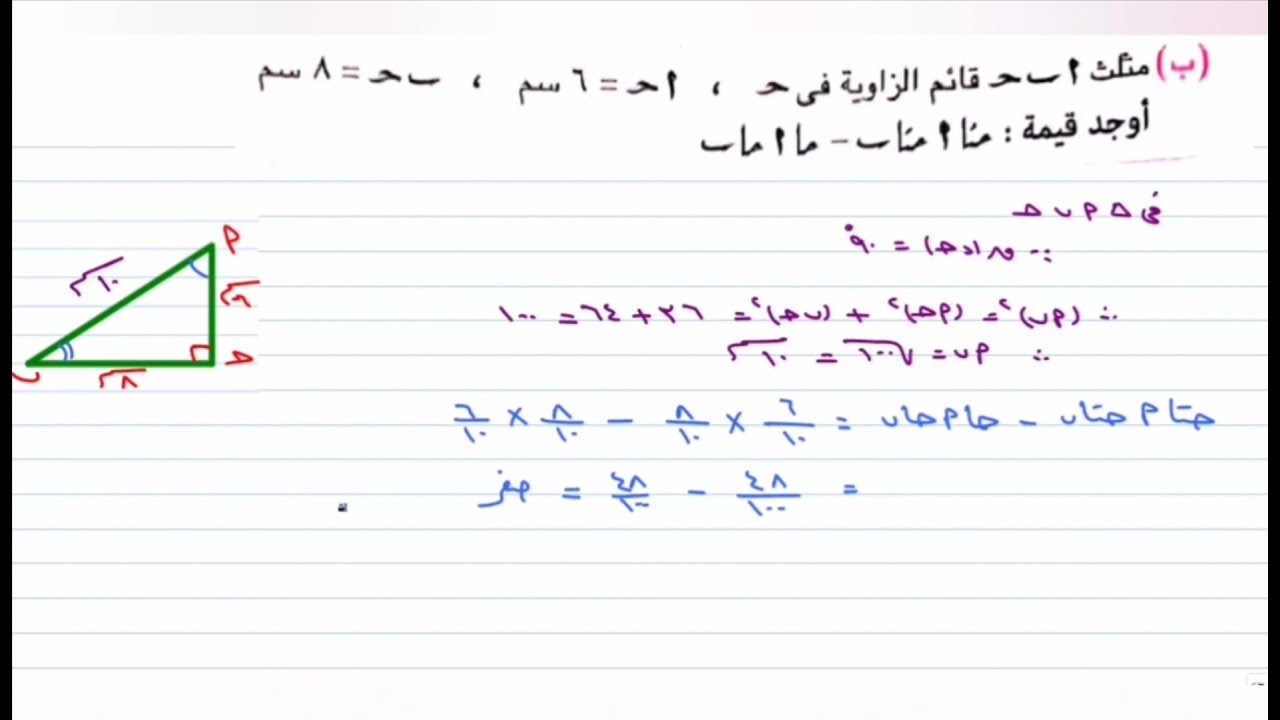 (ب) مثلث ا ب حـ قائم الزاوية فى حـ ، ا حـ = ٦ سم ، ب حـ = ٨ سم
أوجد قيمة : منا ا منا ب – ما ا ما ب
فى Δ ا ب حـ
∵ ق(حـ) = ٩٠°
∴ (ا ب)² = (ا حـ)² + (ب حـ)² = ٣٦ + ٦٤ = ١٠٠
∴ ا ب = √١٠٠ = ١٠ سم
جتا ا جتا ب - جا ا جا ب = ٦/١٠ × ٨/١٠ - ٨/١٠ × ٦/١٠
= ٤٨/١٠٠ - ٤٨/١٠٠ = صفر
ا
١٠ سم
٦ سم
حـ
٨ سم
ب